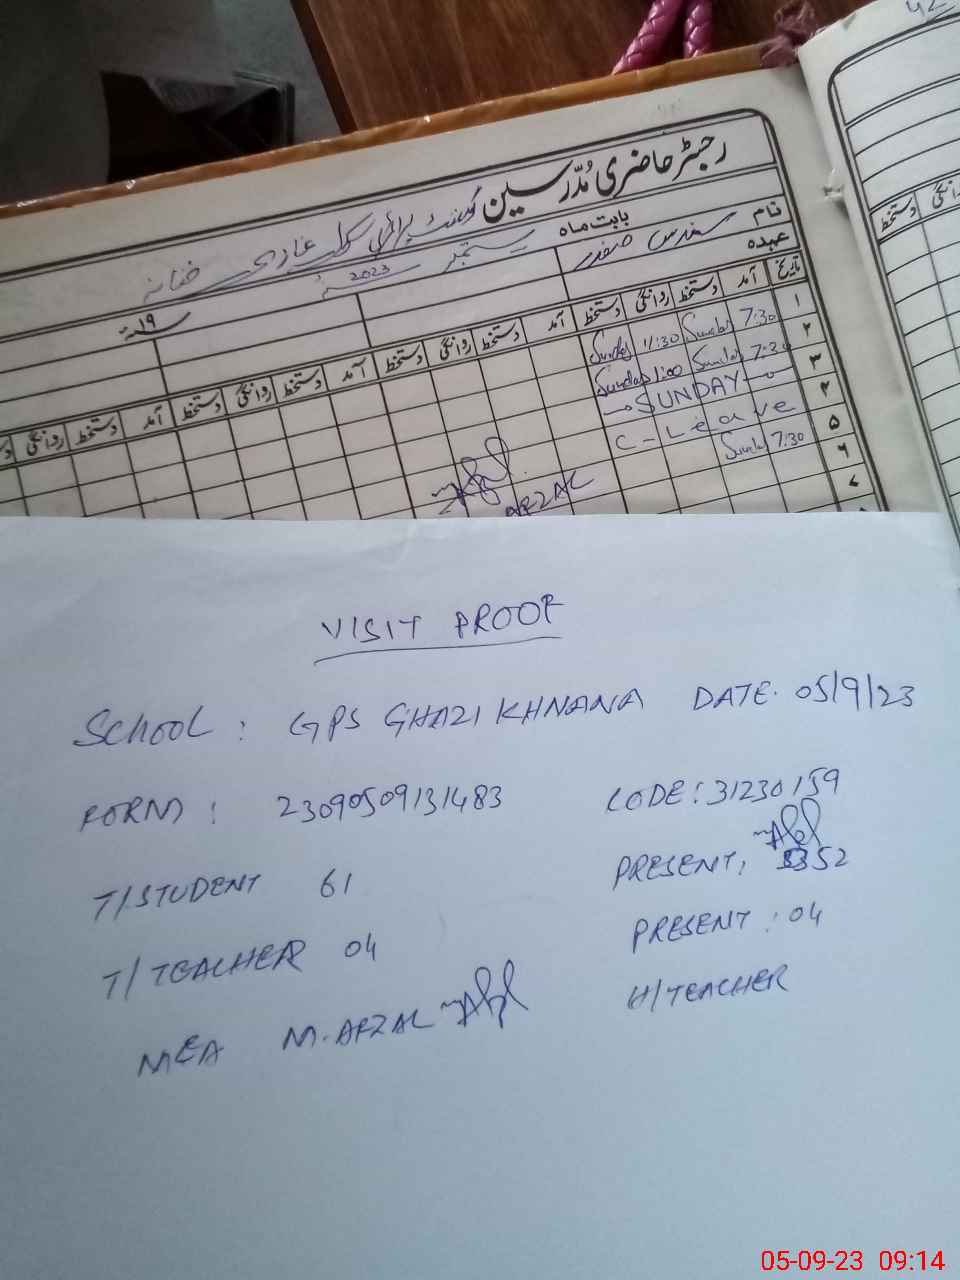 رجسٹر حاضری مُدّرسین گورنمنٹ پرائمری سکول غازی خنانہ
نام سندس صفدر بابت ماہ ستمبر 2023
عہدہ
۱۹
تاریخ آمد دستخط روانگی دستخط آمد دستخط روانگی دستخط آمد دستخط روانگی دستخط آمد دستخط روانگی
۱ 7:30 Sundas 11:30 Sundas
۲ 7:30 Sundas 1:00 Sundas
۳ SUNDAY
۴ C-Leave
۵ 7:30 Sundas
۶
۷
AFZAL
دستخط روانگی
VISIT PROOF
SCHOOL: GPS GHAZI KHNANA DATE. 05/9/23
FORM: 23090509131483 CODE: 31230159
T/STUDENT 61 PRESENT: 52
T/TEACHER 04 PRESENT: 04
MEA M. AFZAL H/TEACHER
05-09-23 09:14